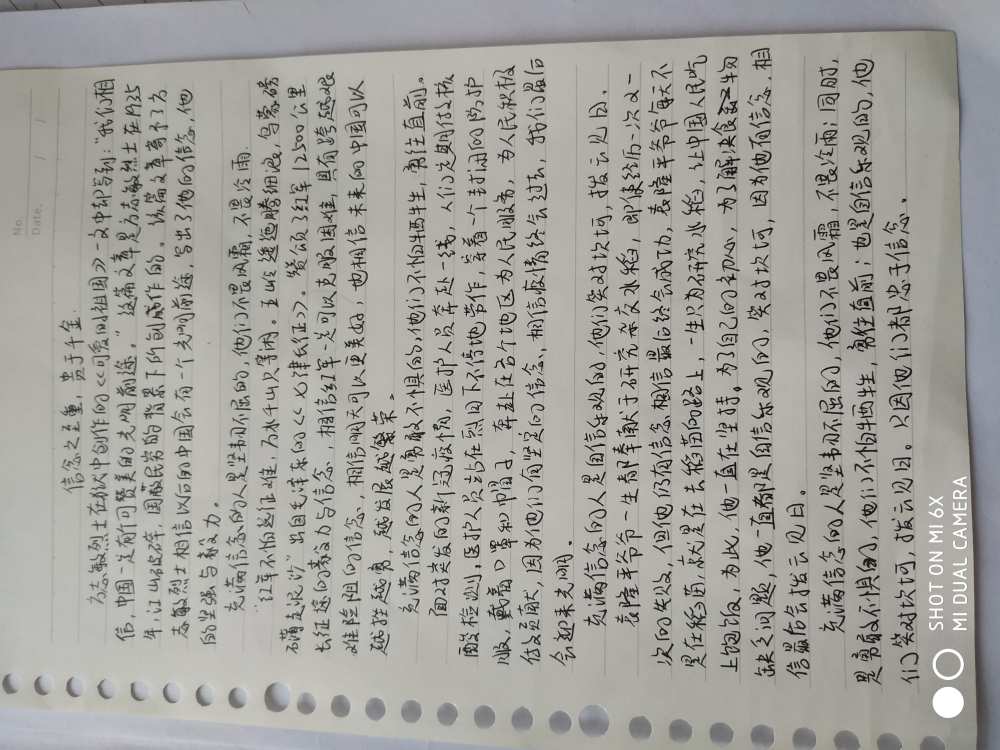 No.
Date. / /
信念之至重，贵于千金.
方志敏烈士在狱中创作的<<可爱的祖国>>一文中却写到：“我们相
信，中国一定有个可赞美的光明前途。”这篇文章是方志敏烈士在1935
年，江山破碎，国敝民穷的背景下所创作的。该篇文章寄予了方
志敏烈士相信以后的中国会有一个光明前途，写出了他的信念，他
的坚强与毅力。
充满信念的人是坚韧不屈的，他们不畏风霜，不畏冷雨.
“红军不怕远征难，万水千山只等闲。五岭逶迤腾细浪，乌蒙磅
礴走泥丸”出自毛泽东的<<七律长征>>。赞颂了红军12500公里
长征途的毅力与信念，相信红军一定可以克服困难，具有跨越艰
难险阻的信念，相信明天可以更美好，也相信未来的中国可以
越挫越勇，越发展越繁荣。
充满信念的人是勇敢不惧的，他们不怕牺牲，勇往直前。
面对突发的新冠疫情，医护人员奔赴一线，人们定期做核
酸检测，医护人员站在烈日下不停地劳作，穿着一个封闭的防护
服，戴着口罩和帽子，奔赴在各个地区为人民服务，为人民积极
做贡献，因为他们有坚定的信念，相信疫情终会过去，我们最后
会迎来光明。
充满信念的人是自信乐观的，他们笑对坎坷，拨云见日。
袁隆平爷爷一生都奉献于研究杂交水稻，即使经历一次又一
次的失败，但他仍有信念相信最后终会成功，袁隆平爷爷每天不
是在稻茵，就是在去稻茵的路上，一生只为研究水稻，让中国人民吃
上饱饭，为此，他一直在坚持。为了自己的初心，为了解决食物
缺乏问题，他一直都是自信乐观的，笑对坎坷，因为他有信念，相
信最后会拨云见日。
充满信念的人是坚韧不屈的，他们不畏风霜，不畏冷雨；同时，
是勇敢不惧的，他们不怕牺牲，勇往直前；也是自信乐观的，他
们笑对坎坷，拨云见日。只因他们都忠于信念。
SHOT ON MI 6X
MI DUAL CAMERA